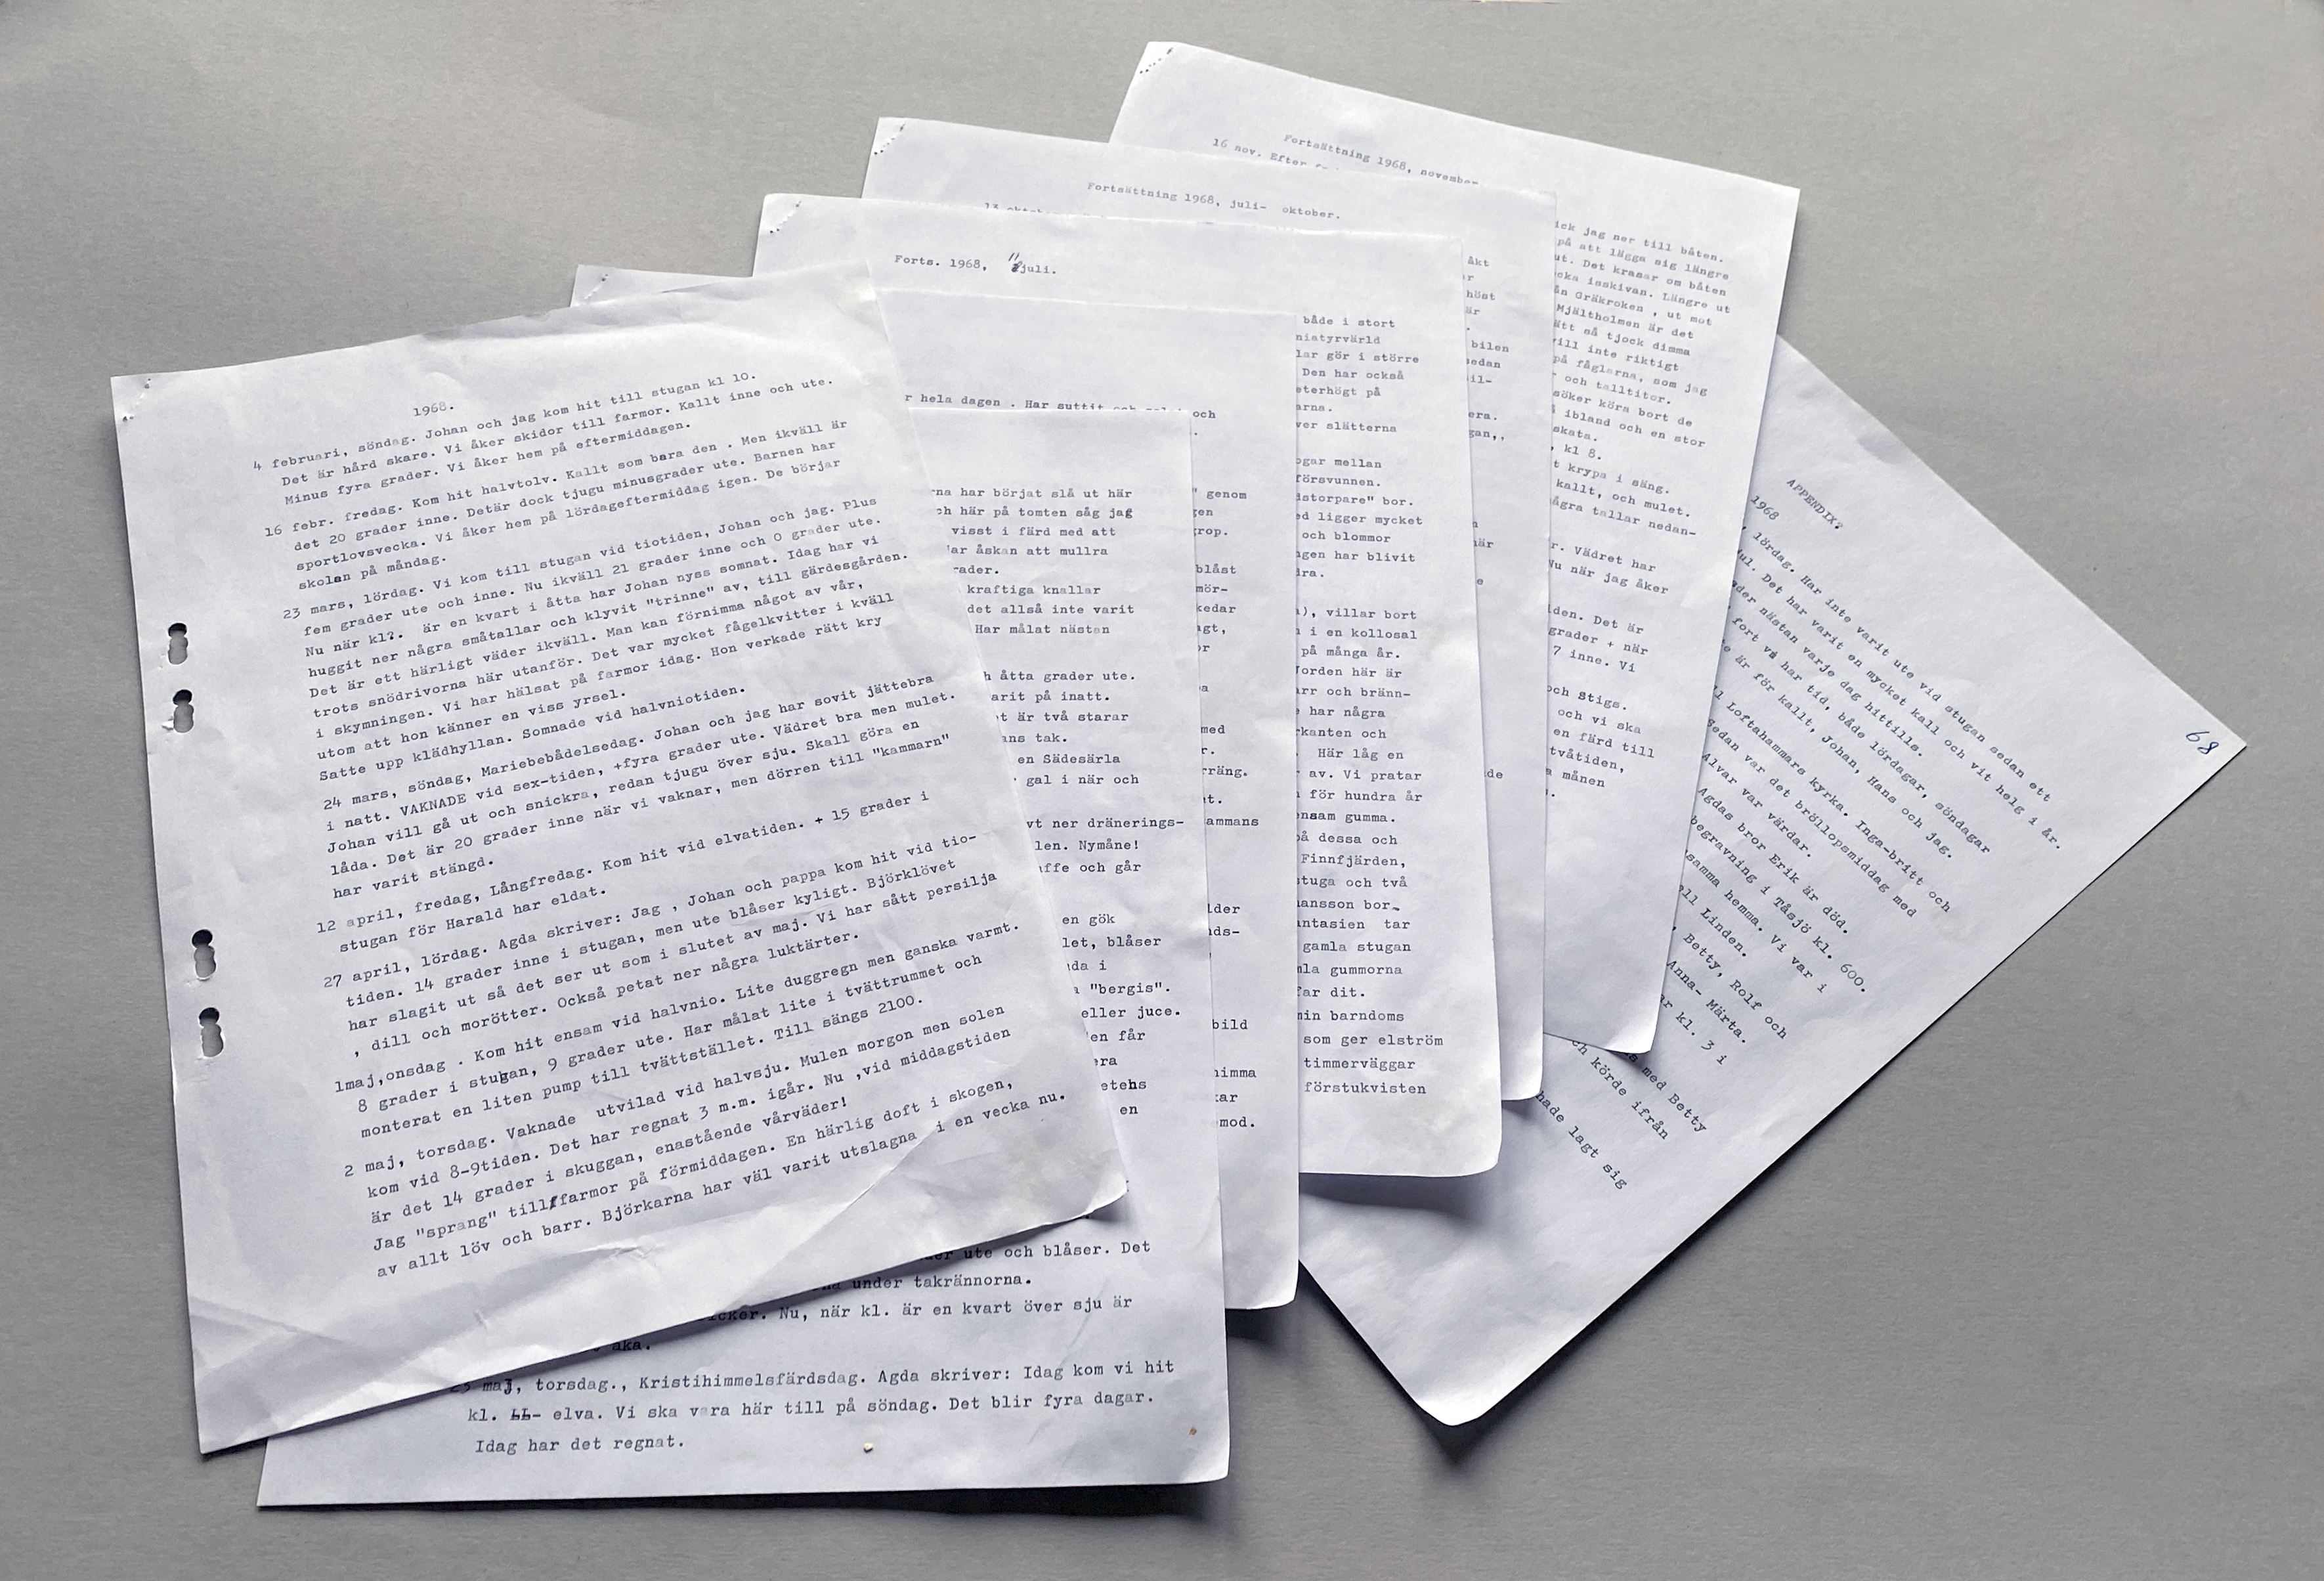 1968.
4 februari, söndag. Johan och jag kom hit till stugan kl 10.
Det är hård skare. Vi åker skidor till farmor. Kallt inne och ute.
Minus fyra grader. Vi åker hem på eftermiddagen.
16 febr. fredag. Kom hit halvtolv. Kallt som bara den . Men ikväll är
det 20 grader inne. Detär dock tjugu minusgrader ute. Barnen har
sportlovsvecka. Vi åker hem på lördageftermiddag igen. De börjar
skolan på måndag.
23 mars, lördag. Vi kom till stugan vid tiotiden, Johan och jag. Plus
fem grader ute och inne. Nu ikväll 21 grader inne och 0 grader ute.
Nu när kl?. är en kvart i åtta har Johan nyss somnat. Idag har vi
huggit ner några småtallar och klyvit "trinne" av, till gärdesgården.
Det är ett härligt väder ikväll. Man kan förnimma något av vår,
trots snödrivorna här utanför. Det var mycket fågelkvitter i kväll
i skymningen. Vi har hälsat på farmor idag. Hon verkade rätt kry
utom att hon känner en viss yrsel.
Satte upp klädhyllan. Somnade vid halvniotiden.
24 mars, söndag, Mariebebådelsedag. Johan och jag har sovit jättebra
i natt. VAKNADE vid sex-tiden, +fyra grader ute. Vädret bra men mulet.
Johan vill gå ut och snickra, redan tjugu över sju. Skall göra en
låda. Det är 20 grader inne när vi vaknar, men dörren till "kammarn"
har varit stängd.
12 april, fredag, Långfredag. Kom hit vid elvatiden. + 15 grader i
stugan för Harald har eldat.
27 april, lördag. Agda skriver: Jag , Johan och pappa kom hit vid tio-
tiden. 14 grader inne i stugan, men ute blåser kyligt. Björklövet
har slagit ut så det ser ut som i slutet av maj. Vi har sått persilja
, dill och morötter. Också petat ner några luktärter.
1maj,onsdag . Kom hit ensam vid halvnio. Lite duggregn men ganska varmt.
8 grader i stugan, 9 grader ute. Har målat lite i tvättrummet och
monterat en liten pump till tvättstället. Till sängs 2100.
2 maj, torsdag. Vaknade utvilad vid halvsju. Mulen morgon men solen
kom vid 8-9tiden. Det har regnat 3 m.m. igår. Nu ,vid middagstiden
är det 14 grader i skuggan, enastående vårväder!
Jag "sprang" till farmor på förmiddagen. En härlig doft i skogen,
av allt löv och barr. Björkarna har väl varit utslagna i en vecka nu.
na har börjat slå ut här
ch här på tomten såg jag
visst i färd med att
ar åskan att mullra
rader.
kraftiga knallar
det allså inte varit
Har målat nästan
h åtta grader ute.
arit på inatt.
t är två starar
ans tak.
en Sädesärla
gal i när och
vt ner dränerings-
len. Nymåne!
affe och går
en gök
let, blåser
da i
"bergis".
eller juce.
en får
era
etehs
en
ute och blåser. Det
under takrännorna.
Nu, när kl. är en kvart över sju är
åka.
23 maj, torsdag., Kristihimmelsfärdsdag. Agda skriver: Idag kom vi hit
kl. elva. Vi ska vara här till på söndag. Det blir fyra dagar.
Idag har det regnat.
r hela dagen . Har suttit och och
genom
gen
grop.
blåst
mör-
kedar
agt,
or
med
r.
rräng.
et.
ammans
lder
ds-
bild
himma
kar
mod.
Forts. 1968, 11 juli.
både i stort
niatyrvärld
lar gör i större
Den har också
eterhögt på
arna.
ver slätterna
ogar mellan
försvunnen.
dstorpare" bor.
ed ligger mycket
och blommor
ngen har blivit
dra.
), villar bort
i en kollosal
på många år.
Jorden här är
arr och bränn-
har några
rkanten och
. Här låg en
av. Vi pratar
för hundra år
ensam gumma.
på dessa och
Finnfjärden,
stuga och två
ansson bor.
antasien tar
gamla stugan
mla gummorna
far dit.
min barndoms
som ger elström
timmerväggar
förstukvisten
Fortsättning 1968, juli- oktober.
13 oktober
åkt
ar
höst
är
bilen
sedan
bil-
era.
gan,,
när
de
Fortsättning 1968, november
16 nov. Efter
ick jag ner till båten.
på att lägga sig längre
ut. Det krasar om båten
ocka isskivan. Längre ut
ån Gräkroken , ut mot
Mjältholmen är det
ätt så tjock dimma
vill inte riktigt
på fåglarna, som jag
och talltitor.
söker köra bort de
ibland och en stor
skata.
, kl 8.
t krypa i säng.
kallt, och mulet.
ågra tallar nedan-
r. Vädret har
Nu när jag åker
den. Det är
grader + när
7 inne. Vi
och Stigs.
och vi ska
en färd till
tvåtiden,
månen
APPENDIX?
1968
68
, lördag. Har inte varit ute vid stugan sedan ett
jul. Det har varit en mycket kall och vit helg i år.
der nästan varje dag hittills.
fort vi har tid, både lördagar, söndagar
e är för kallt, Johan, Hans och jag.
Loftahammars kyrka. Inga-britt och
Sedan var det bröllopsmiddag med
Alvar var värdar.
Agdas bror Erik är död.
begravning i Tåsjö kl. 600.
samma hemma. Vi var i
ell Linden.
, Betty, Rolf och
Anna- Märta.
ar kl. 3 i
med Betty
ch körde ifrån
hade lagt sig